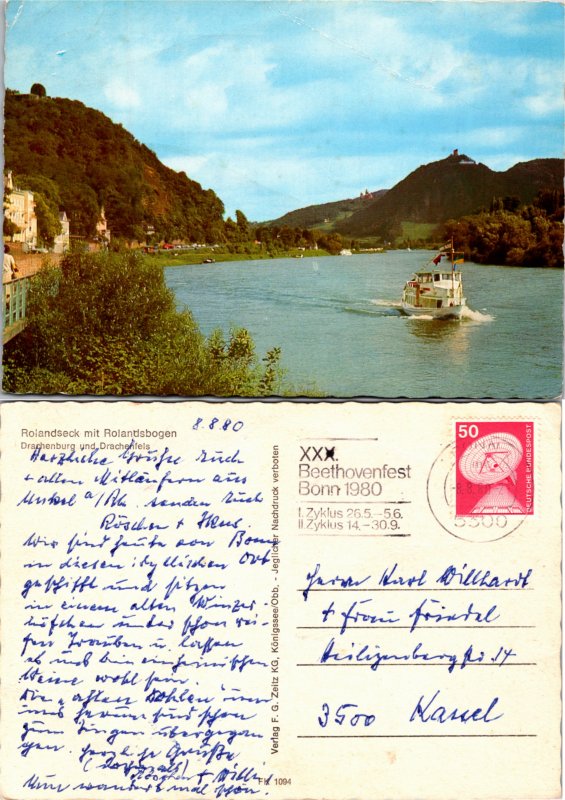 Rolandseck mit Rolandsbogen
Drachenburg und Drachenfels
8.8.80
Herzliche Grüße Euch
+ allen Mitläufern aus
Unkel a/Rh. senden Euch
Röschen +
Wir sind heute von Bonn
in diesen idyllischen Ort
geschifft und sitzen
in einem alten Winzer-
höfchen unter schon rei-
fen Trauben u. lassen
es uns bei einheimischen
Weine wohl sein.
Die alten
uns herum sind schon
zum Singen übergegan
gen. Herzliche Grüße
(
Röschen + Willi
Nun wandert mal schön.
Verlag F. G. Zeitz KG, Königssee/Obb. - Jeglicher Nachdruck verboten
FK 1094
XXX.
Beethovenfest
Bonn 1980
I. Zyklus 26.5.–5.6.
II. Zyklus 14.–30.9.
5300
50
DEUTSCHE BUNDESPOST
Herrn Karl Willhardt
+ Frau Friedel
Heiligenbergstr. 14
3500 Kassel